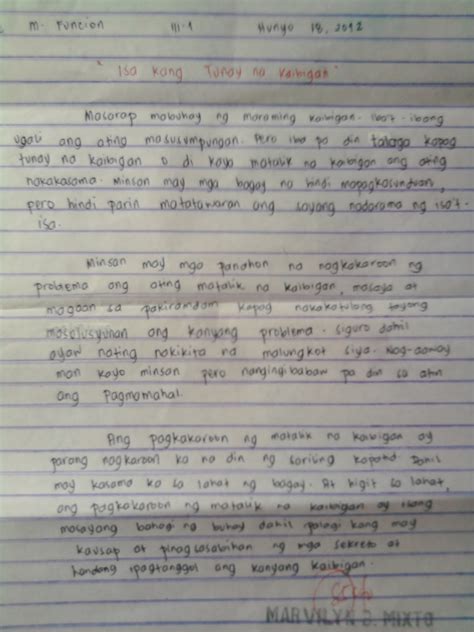 M. Funcion III-1 Hunyo 18, 2012
" Isa kang Tunay na Kaibigan "
Masarap mabuhay ng maraming kaibigan. Iba't-ibang
ugali ang ating masusumpungan. Pero iba pa din talaga kapag
tunay na kaibigan o di kaya matalik na kaibigan ang ating
nakakasama. Minsan may mga bagay na hindi mapagkasunduan,
pero hindi parin matatawaran ang sayang nadarama ng isa't-
isa.
Minsan may mga panahon na nagkakaroon ng
problema ang ating matalik na kaibigan, masaya at
magaan sa pakiramdam kapag nakakatulong tayong
masolusyunan ang kanyang problema. Siguro dahil
ayaw nating nakikita na malungkot siya. Nag-aaway
man kayo minsan pero nangingibabaw pa din sa atin
ang Pagmamahal.
Ang pagkakaroon ng matalik na kaibigan ay
parang nagkaroon ka na din ng sariling kapatid. Dahil
may kasama ka sa lahat ng bagay. At higit sa lahat,
ang pagkakaroon ng matalik na kaibigan ay isang
masayang bahagi na buhay dahil palagi kang may
kausap at pinagsasabihan ng mga sekreto at
handang ipagtanggol ang kanyang kaibigan.
MARVILYN D. MIXTO